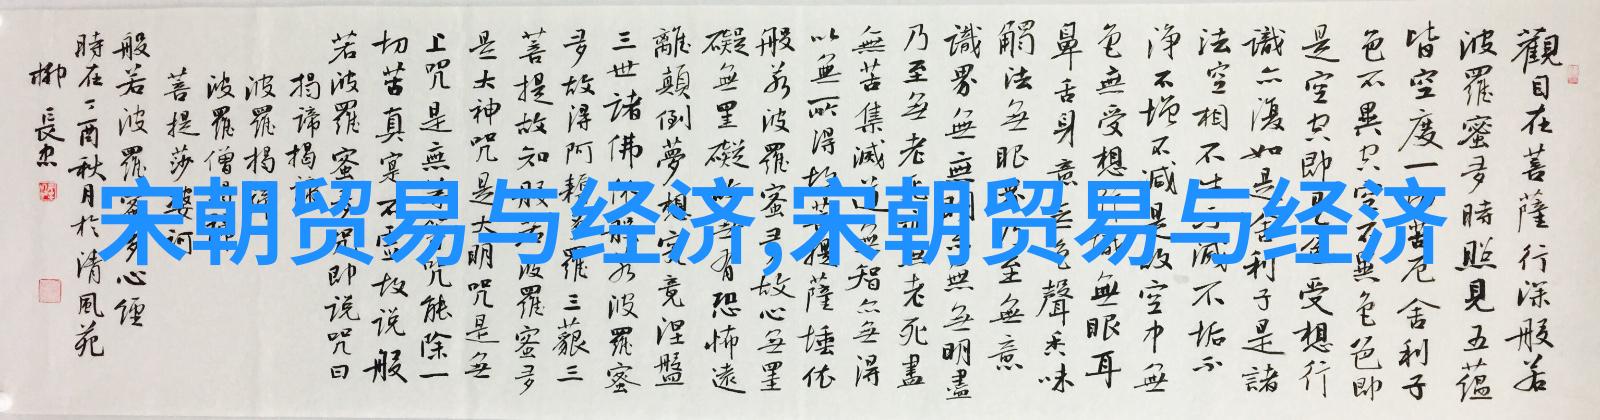 觀自在菩薩行深般若
波羅蜜多時照見五蘊
皆空度一切苦厄舍利子
色不異空空不異色色即
是空空即是色受想行
識亦復如是舍利子是諸
法空相不生不滅不垢不
淨不增不減是故空中無
色無受想行識無眼耳
鼻舌身意無色聲香味
觸法無眼界乃至無意
識界無無明亦無無明盡
乃至無老死亦無老死盡
無苦集滅道無智亦無得
以無所得故菩提薩埵依
般若波羅蜜多故心無罣
礙無罣礙故無有恐怖遠
離顛倒夢想究竟涅盤
三世諸佛依般若波羅蜜
多故得阿耨多羅三藐三
菩提故知般若波羅蜜多
是大神咒是大明咒是無
上咒是無等等咒能除一
切苦真實不虛故說般
若波羅蜜多咒即說咒曰
揭諦揭諦
波羅揭諦
波羅僧揭諦
菩提莎婆訶
般若波羅蜜多心經
時在丁酉秋月於清風苑
柳長忠
宋朝贸易与经济,宋朝贸易与经济